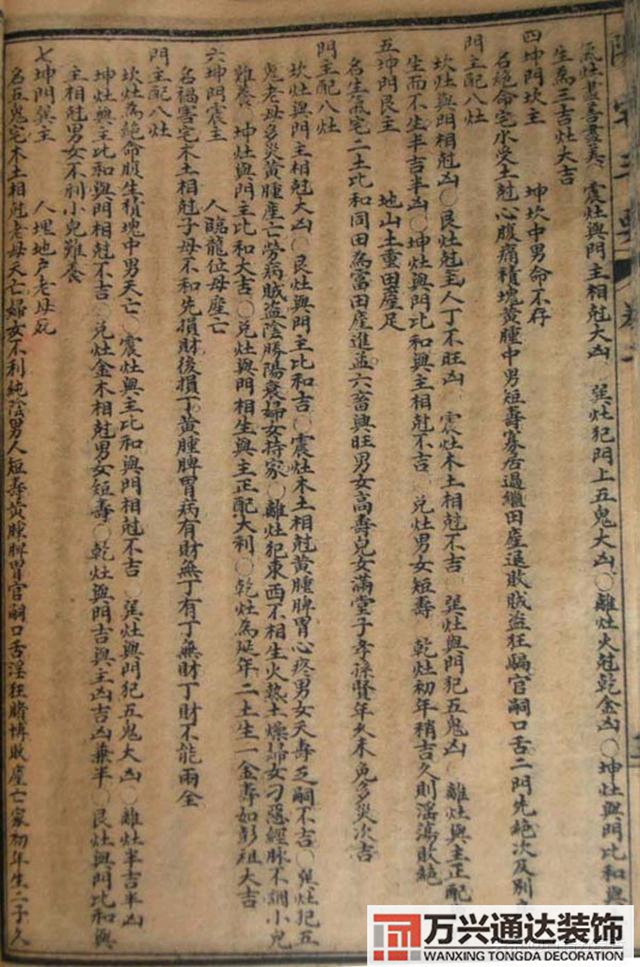 氣灶盡善盡美　震灶與門主相尅大凶○巽灶犯門上五鬼大凶○離灶火尅乾金凶○坤灶與門比和與
生為三吉灶大吉
四坤門坎主　坤坎中男命不存
名絕命宅水受土尅心腹痛積塊黃腫中男短壽寡居過繼田產退敗賊盜狂騙官嗣口舌二門先絕次及別
門主配八灶
坎灶與門主相尅凶○艮灶尅主人丁不旺凶○震灶木土相尅不吉○巽灶與門犯五鬼凶○離灶與主正配
生而不生半吉半凶○坤灶與門比和與主相尅不吉○兌灶男女短壽　乾灶初年稍吉久則淫蕩敗絕
五坤門艮主　地山土重田產足
名生氣宅二土比和同田為富田產進益六畜興旺男女高壽兒女滿堂子孝孫賢年久未免多災次吉
門主配八灶
坎灶與門主相尅大凶○艮灶與門主比和吉○震灶木土相尅黃腫脾胃心疼男女夭壽乏嗣不吉○巽灶犯五
鬼老母多災黃腫產亡勞病賊盜陰勝陽衰婦女持家○離灶犯東西不相生火熱土燥婦女刁惡經脉不調小兒
難養　坤灶與門主比和大吉○兌灶與門相生與主正配大利○乾灶為延年二土生一金壽如彭祖大吉
六坤門震主　人臨龍位母產亡
名禍害宅木土相尅子母不和先損財後損丁黃腫脾胃病有財無丁有丁無財丁財不能兩全
門主配八灶
坎灶為絕命腹生積塊中男夭亡○震灶與主比和與門相尅不吉○巽灶與門犯五鬼大凶○離灶半吉半凶
坤灶與主比和與門相尅不吉○兌灶金木相尅男女短壽○乾灶與門吉與主凶吉凶兼半○艮灶與門比和與
主相尅男女不利小兒難養
七坤門巽主　人埋地戶老母死
名五鬼宅木土相尅老母夭亡婦女不利純陰男人短壽黃腫脾胃官嗣口舌淫狂賭博敗產亡家初年生二子久
万兴通达装饰
WANXING TONGDA DECORATION